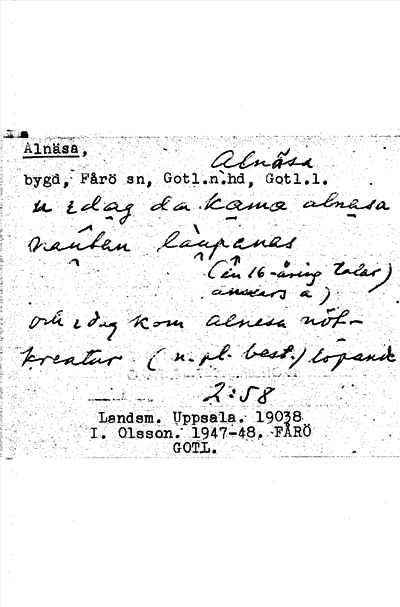 Alnäsa,
Alnäsa
bygd, Fårö sn, Gotl.n.hd, Gotl.l.
u idag da kamo alnäsa
nautan laupanas
(en 16-åring talar)
annars a)
och idag kom alnesa nöt-
kreatur (n. pl. best.) löpande
2:58
Landsm. Uppsala. 19038
I. Olsson. 1947-48. FÅRÖ
GOTL.